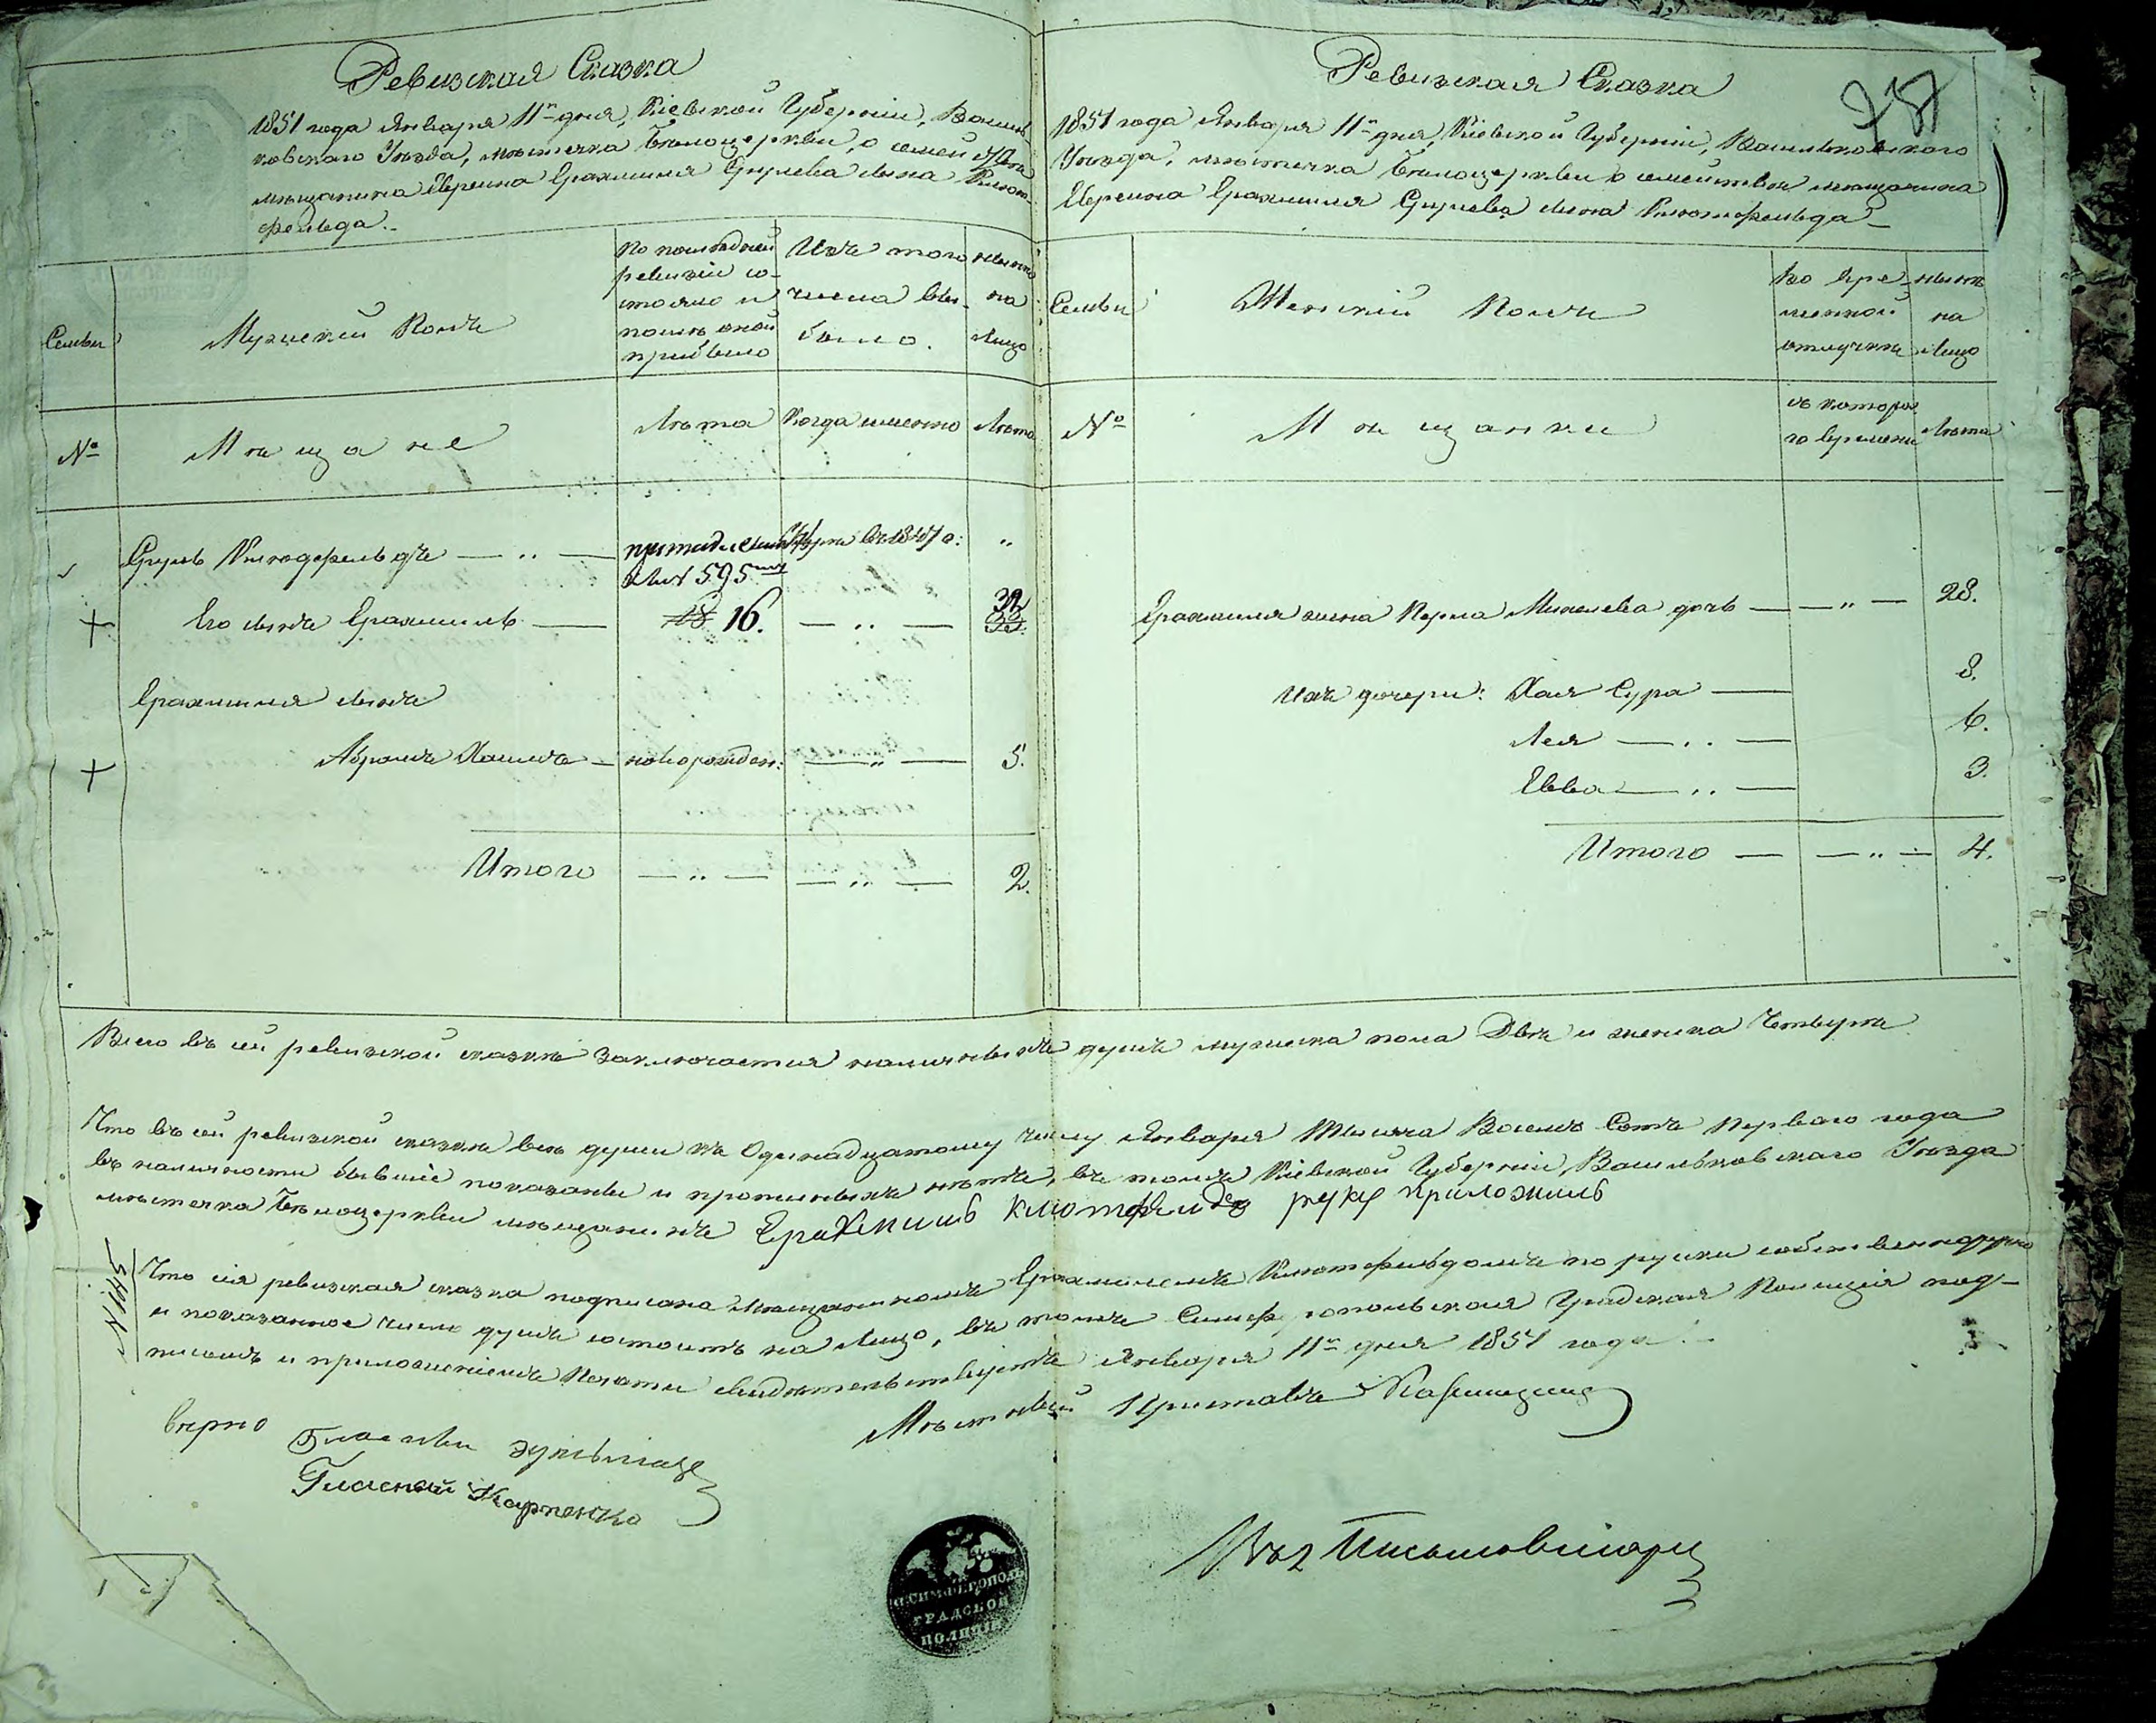 Ревизская Сказка
1851 года Января 11го дня, Кіевской Губерніи, Василь-
ковскаго Уѣзда, мѣстечка Бѣлоцеркви, о семействѣ
мѣщанина Еврея Ерахмиля Сруліева сына Клют-
фельда.
Семьи
Мужескій Полъ
По послѣдней
ревизіи со-
стояло и
послѣ оной
прибыло
Изъ того
числа вы-
было.
нынѣ
на
Лицо
№
Мѣщане
Лѣта
Когда именно
Лѣта
Сруль Клютфельдъ — " —
595
Умре въ 1847 г: "
Его сынъ Ерахмиль —
18 16.
— " —
32
33
Ерахмиля сынъ
Абрамъ Хаимъ — новорожден: — " — 5.
Итого — " — — " — 2.
Ревизская Сказка
1851 года Января 11го дня, Кіевской Губерніи, Васильковскаго
Уѣзда, мѣстечка Бѣлоцеркви о семействѣ мѣщанина
Еврея Ерахмиля Сруліева сына Клютфельда
Семьи
Женскій Полъ
Во вре-
менной
отлучкѣ
нынѣ
на
Лицо
№
Мѣщанки
съ котора-
го времени
Лѣта
Ерахмиля жена Перла Михелева дочь — — " — 28.
Ихъ дочери: Хая Сура — 8.
Лея — " — 6.
Евва — " — 3.
Итого — — " — 4.
Всего въ сей ревизской сказкѣ заключается наличныхъ душъ мужеска пола Двѣ и женска Четыре
Что въ сей ревизской сказкѣ всѣ души къ Одинадцатому числу Января Тысяча Восемь Сотъ Перваго года
въ наличности бывшіе показаны и прописныхъ нѣтъ, въ томъ Кіевской Губерніи, Васильковскаго Уѣзда
мѣстечка Бѣлоцеркви мѣщанинъ Ерахмиль Клютфельдъ руку приложилъ
Что сія ревизская сказка подписана мѣщаниномъ Ерахмилемъ Клютфельдомъ по руски собственноручно
и показанное число душъ состоитъ на лицо, въ томъ Симферопольская Градская Полиція под-
писомъ и приложеніемъ Печати свидѣтельствуетъ Января 11го дня 1851 года.
Мѣстный Приставъ
вѣрно
Гласный
Гласный Карпенко
СИМФЕРОПОЛЬ
ГРАДСКОЙ
ПОЛИЦІИ